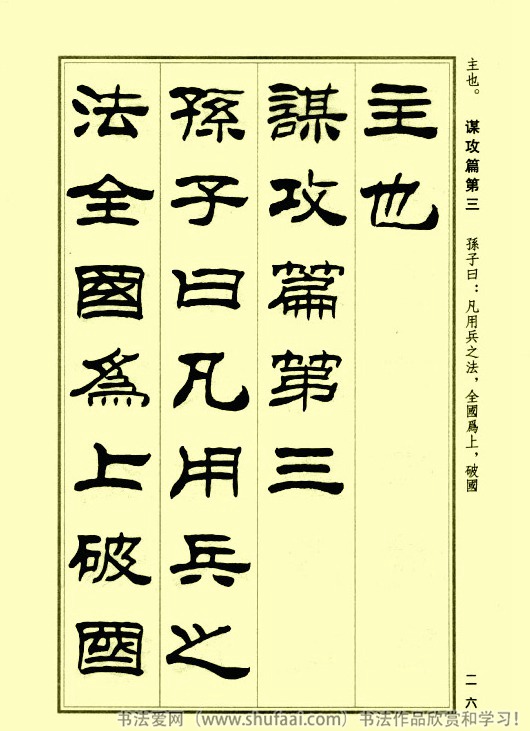 主也
謀攻篇第三
孫子曰凡用兵之
法全國爲上破國
主也。 谋攻篇第三 孫子曰：凡用兵之法，全國爲上，破國
二六
书法爱网（www.shufaai.com）书法作品欣赏和学习！